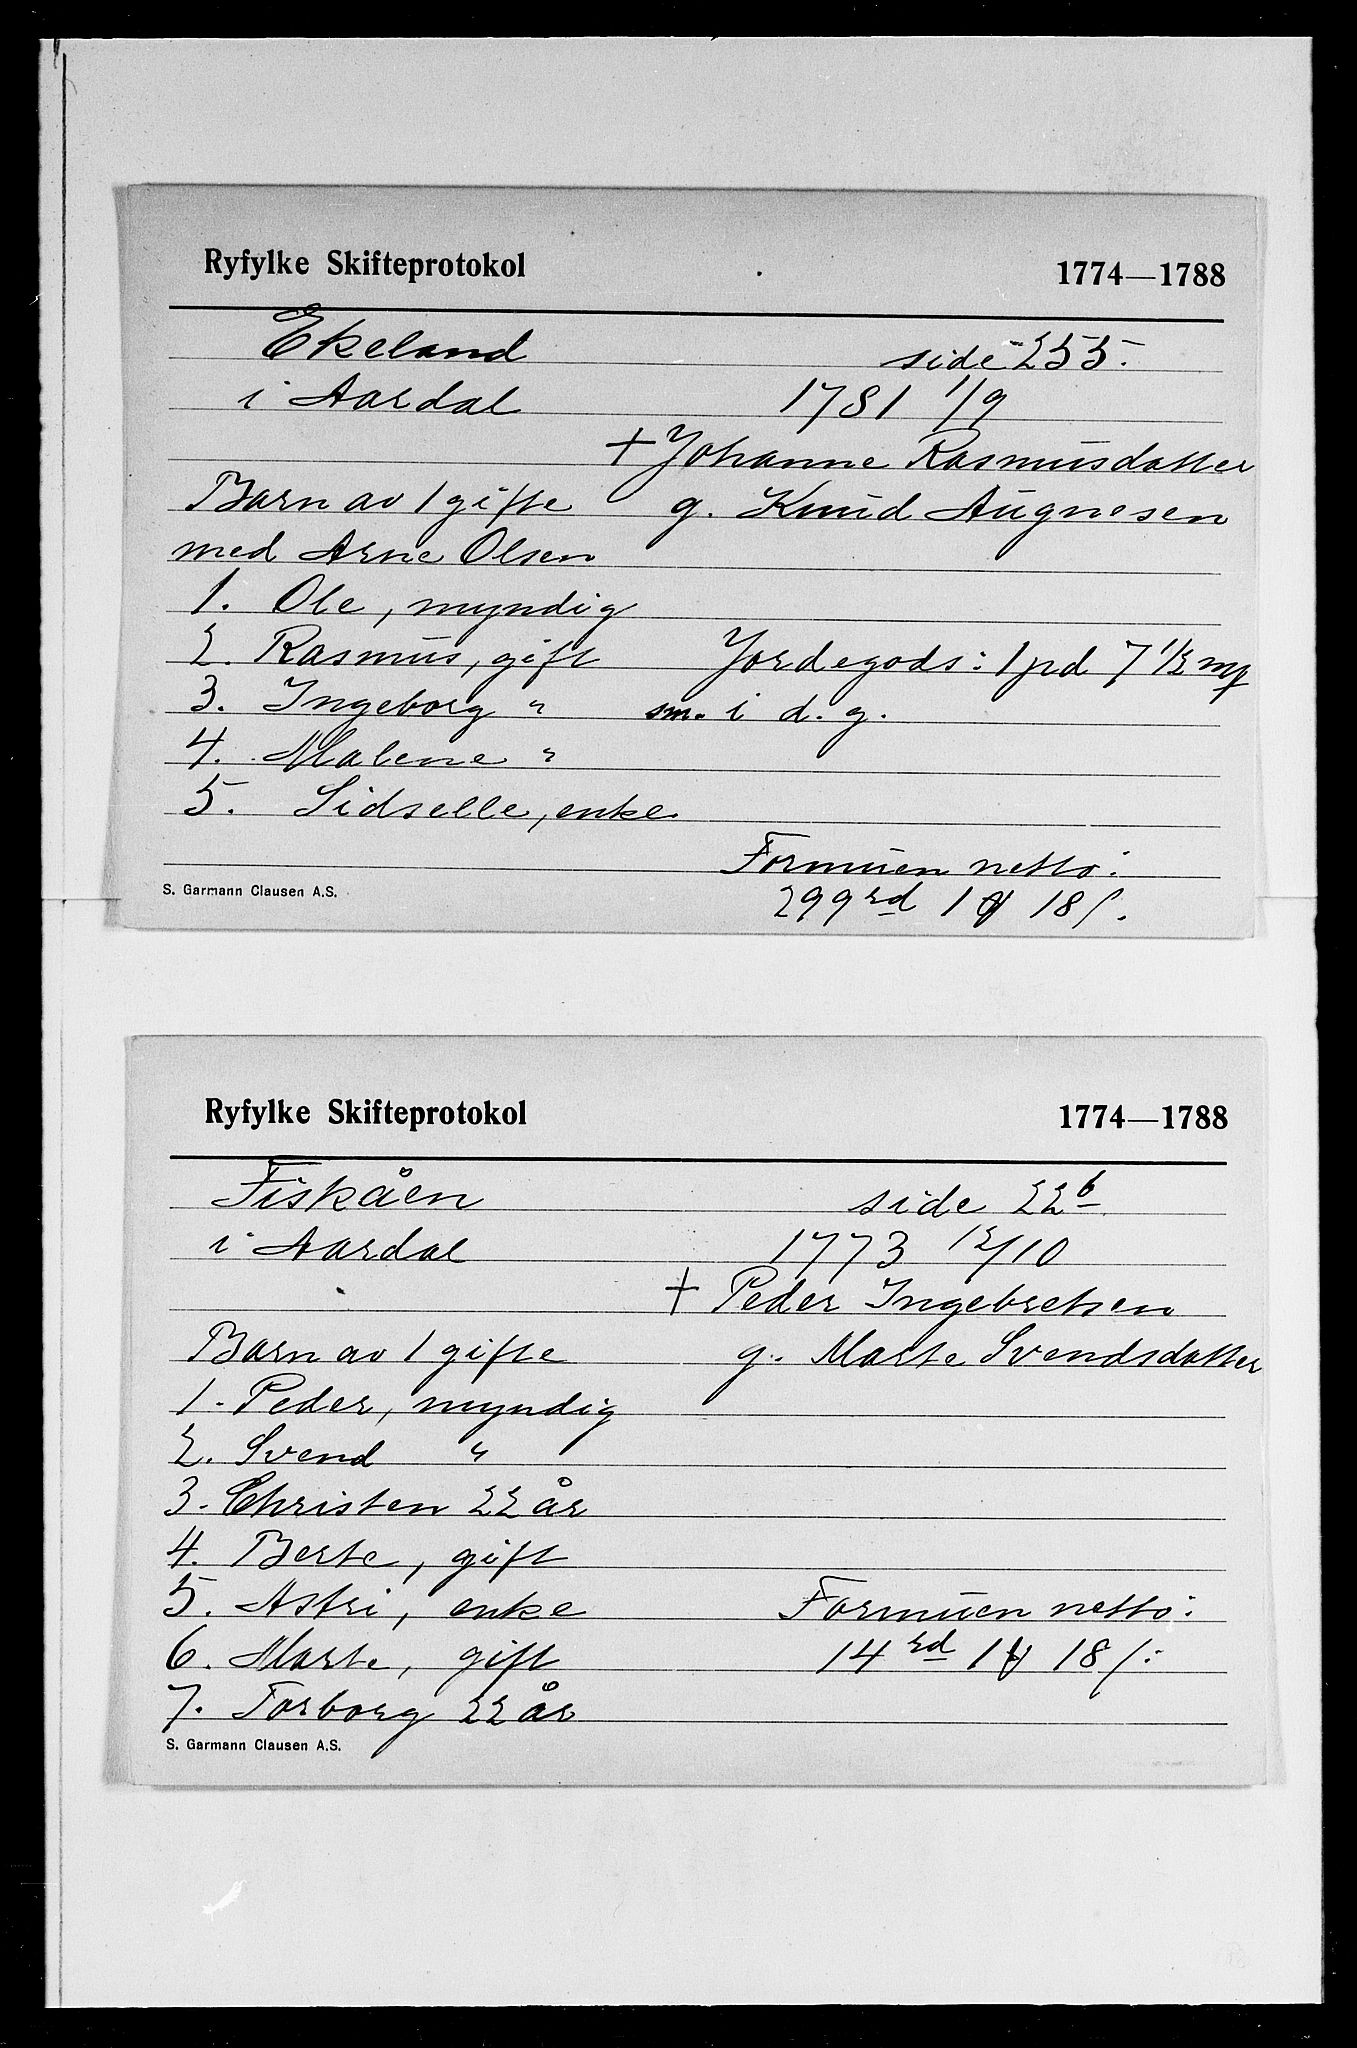 Ryfylke Skifteprotokol 1774—1788
Ekeland side 255.
i Aardal 1781 1/9
+ Johanne Rasmusdatter
Barn av 1 gifte g. Knud Augnesen
med Arne Olsen
1. Ole, myndig
2. Rasmus, gift Jordegods: 1 pd 7 1/2 mg
3. Ingeborg " sm. i d. g.
4. Malene "
5. Sidselle, enke
Formuen netto:
S. Garmann Clausen A.S.
299 rd 1 18 s.
Ryfylke Skifteprotokol 1774—1788
Fiskåen side 22b
i Aardal 1773 12/10
+ Peder Ingebretsen
Barn av 1 gifte g. Marte Svendsdatter
1. Peder, myndig
2. Svend "
3. Christen 22 år
4. Berte, gift
5. Astri, enke Formuen netto:
6. Marte, gift 14 rd 1 18 s.
7. Torborg 22 år
S. Garmann Clausen A.S.